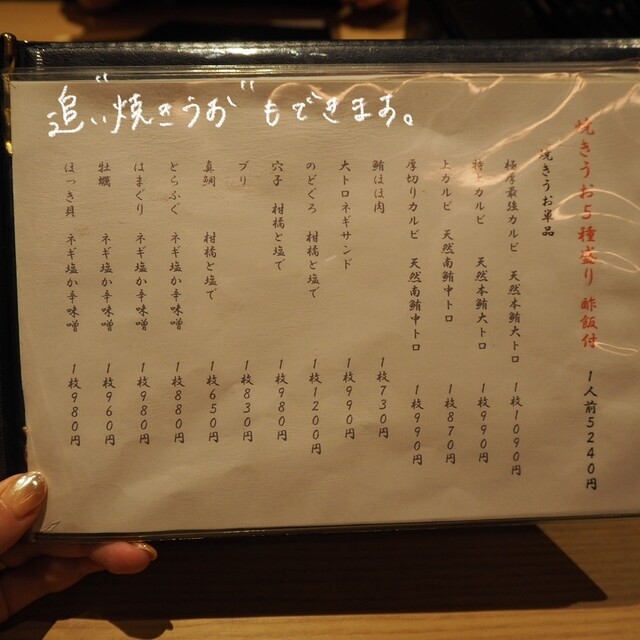 追い"焼きうお"もできます。
焼きうお5種盛り 酢飯付 1人前5240円
焼きうお単品
極厚最強カルビ 天然本鮪大トロ 1枚1090円
特上カルビ 天然本鮪大トロ 1枚990円
上カルビ 天然南鮪中トロ 1枚870円
厚切りカルビ 天然南鮪中トロ 1枚990円
鮪ほほ肉 1枚730円
大トロネギサンド 1枚990円
のどぐろ 柑橘と塩で 1枚1200円
穴子 柑橘と塩で 1枚980円
ブリ 1枚830円
真鯛 柑橘と塩で 1枚650円
とらふぐ ネギ塩か辛味噌 1枚880円
はまぐり ネギ塩か辛味噌 1枚980円
牡蠣 ネギ塩か辛味噌 1枚960円
ほっき貝 ネギ塩か辛味噌 1枚980円